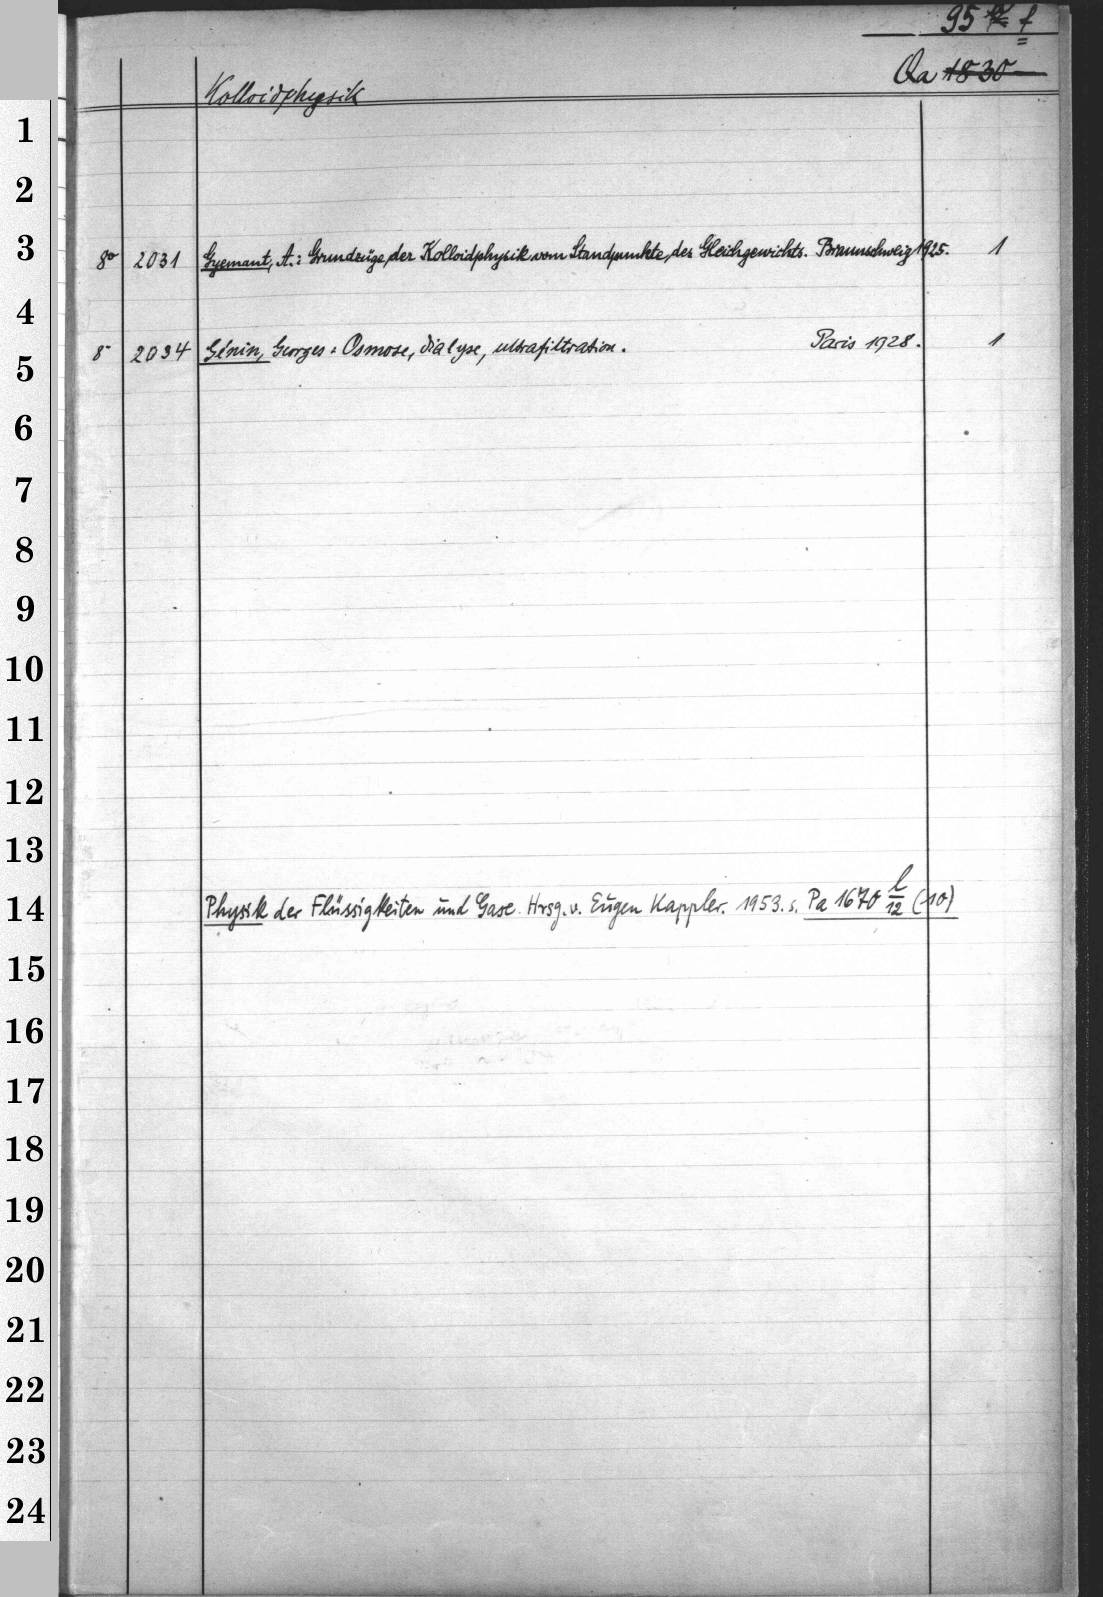 95 f
Qa 1830
Kolloidphysik
1
2
3 8° 2031 Gyemant, A.: Grundzüge der Kolloidphysik vom Standpunkte des Gleichgewichts. Braunschweig 1925. 1
4
8° 2034 Génin, Georges: Osmose, dialyse, ultrafiltration. Paris 1928. 1
5
6
7
8
9
10
11
12
13
14 Physik der Flüssigkeiten und Gase. Hrsg. v. Eugen Kappler. 1953. s. Pa 1670 l/12 (10)
15
16
17
18
19
20
21
22
23
24